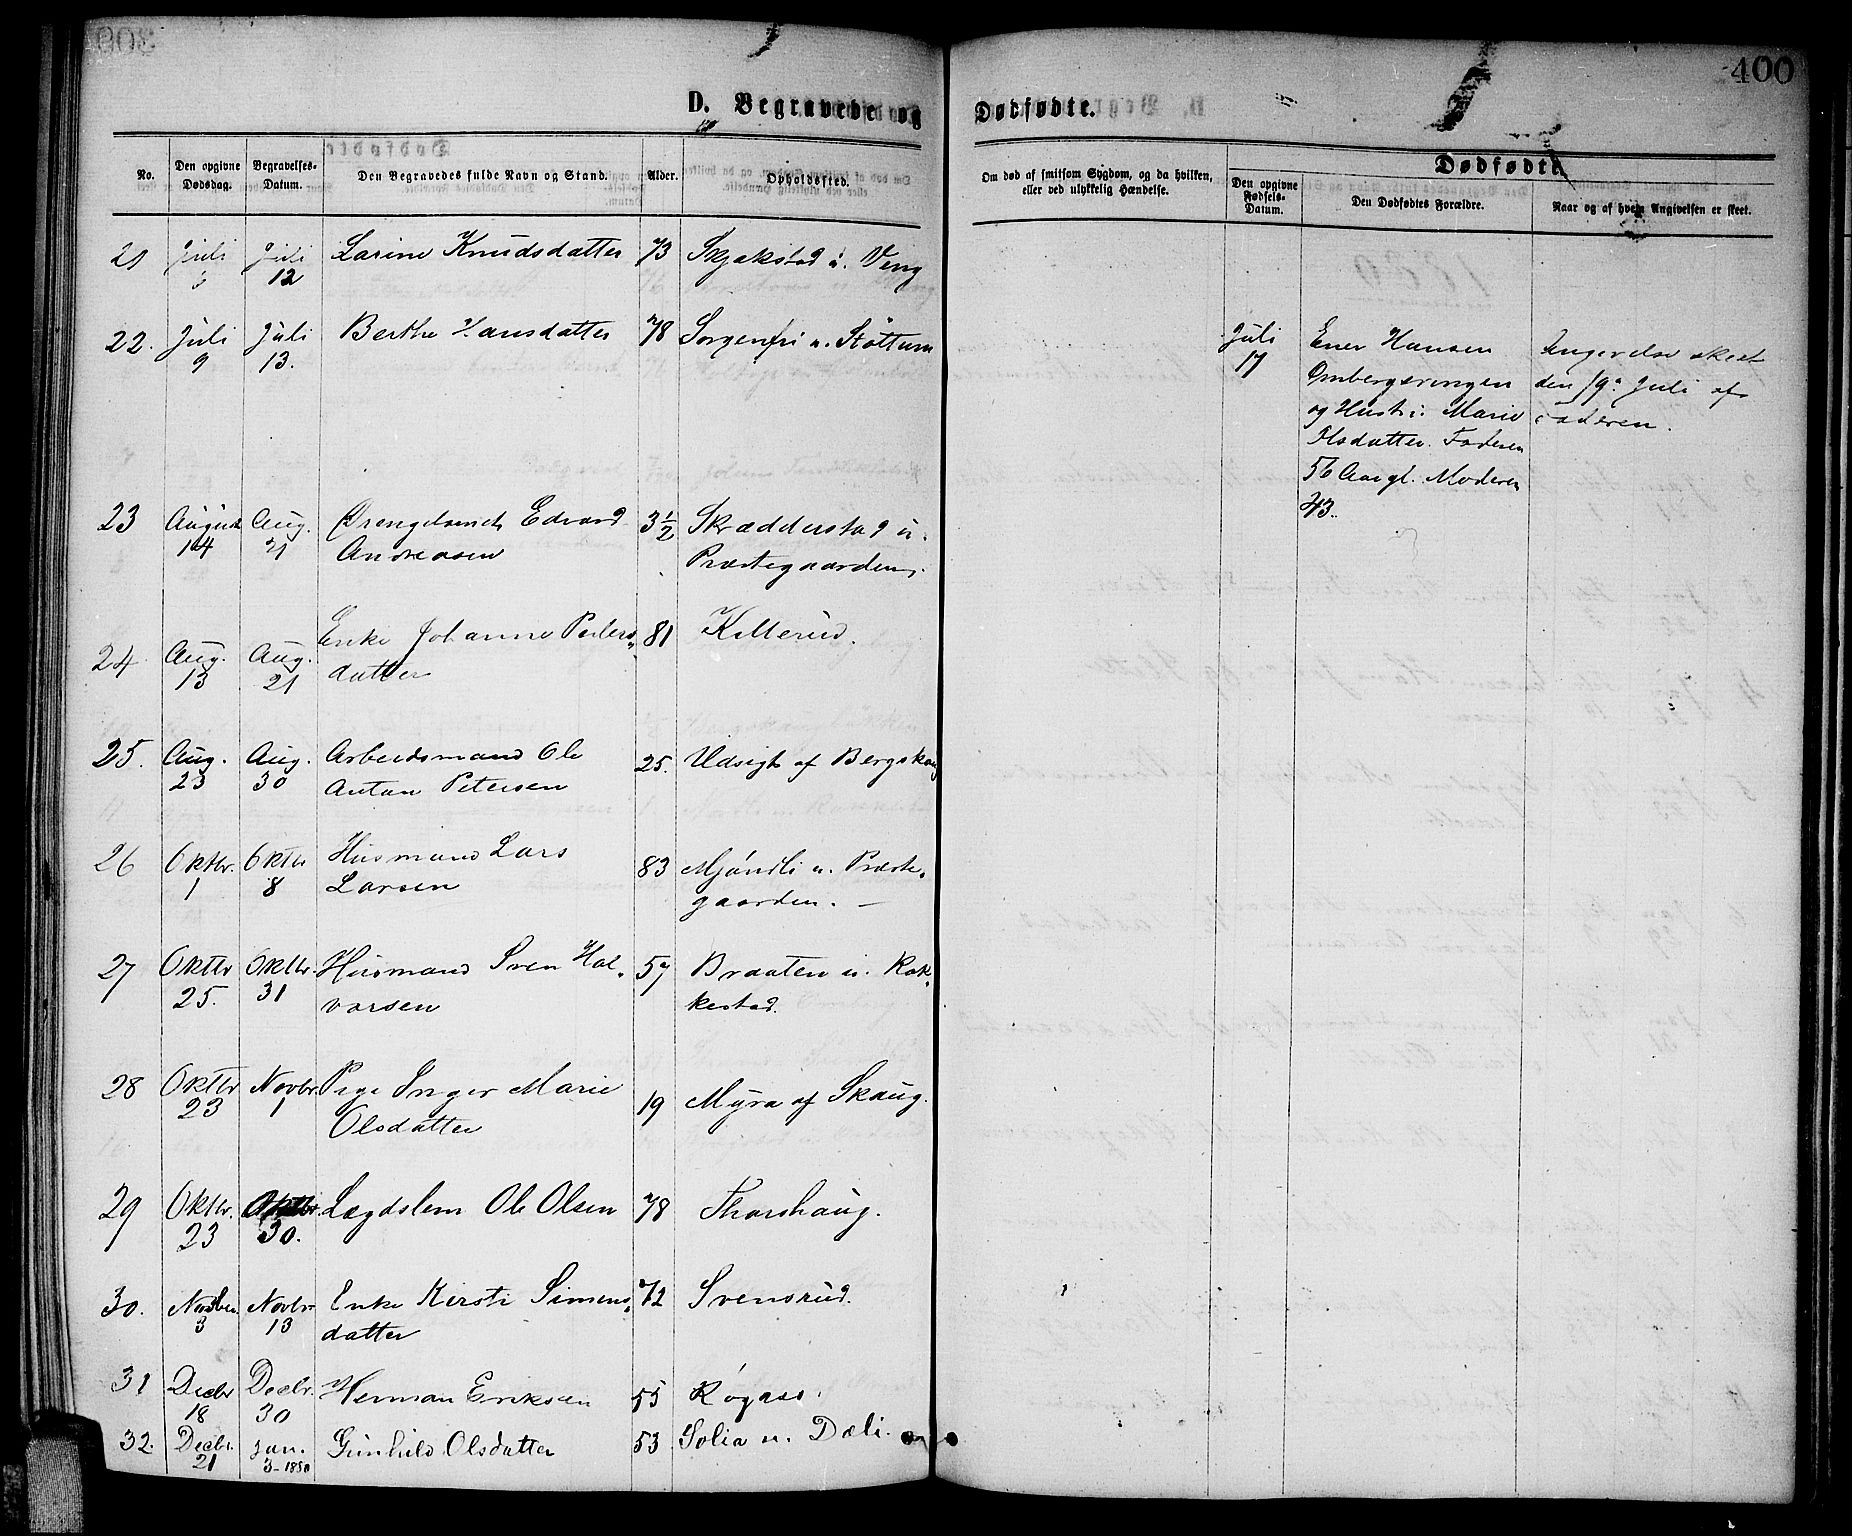 400
D. Begravede og Dødfødte.
No. Den opgivne Dødsdag. Begravelses-Datum. Den Begravedes fulde Navn og Stand. Alder. Opholdssted.
Om død af smitsom Sygdom, og da hvilken,
eller ved ulykkelig Hændelse.
Dødfødte.
Den opgivne Fødsels-Datum. Den Dødfødtes Forældre. Naar og af hvem Angivelsen er skeet.
21 Juli Juli Larine Knudsdatter 73 Skjækstad u. Veng
12
22. Juli Juli Berthe Hansdatter 78 Sorgenfri u. Støttum
9 13.
Juli Ener Hansen Angivelse skeet
17 Ombergsringen den 19de Juli af
og Hustru Marie Faderen.
Olsdatter. Faderen
56 Aar gl. Moderen
43.
23 August Aug. Drengebarnet Edvard 3½ Skrædderstad u.
14 21 Andreasen Præstegaarden.
24. Aug. Aug. Enke Johanne Peders 81 Killerud.
13 21 datter
25. Aug. Aug. Arbeidsmand Ole 25. Udsigt af Bergskaug
23 30 Anton Petersen
26 Oktbr. Oktbr Husmand Lars 83 Mjøndli u. Præste
1 8 Larsen gaarden. —
27 Oktbr Oktbr. Husmand Sven Hal 57 Braaten u. Rak
25. 31 vorsen kestad.
28 Oktbr Novbr. Pige Inger Marie 19 Myra af Skaug.
23 1 Olsdatter
29 Oktbr. Oktbr. Lægdslem Ole Olsen 78 Thorshaug.
23 30.
30. Novber Novbr Enke Kirsti Simens 72 Svensrud.
3 13 datter
31 Decbr Decbr. Herman Eriksen 55 Røgaas.
18 30
32. Decbr. Jan. Gunhild Olsdatter 53 Solia u. Dæli.
21 3-1880